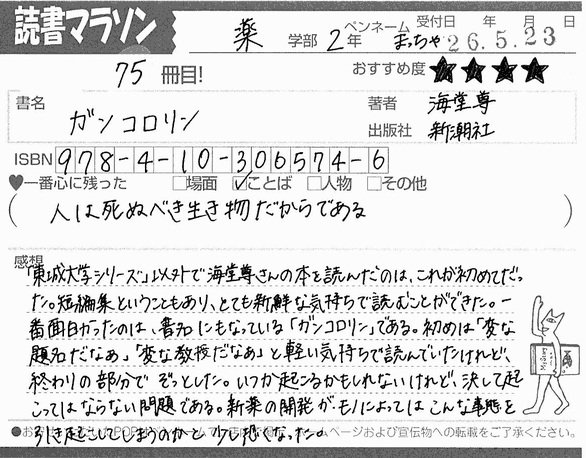 読書マラソン
薬 学部 2年 ペンネーム まっちゃ 受付日 年 月 日 26.5.23
75 冊目! おすすめ度 ★★★★
書名 ガンコロリン 著者 海堂尊
出版社 新潮社
ISBN 978-4-10-306574-6
♥一番心に残った □場面 ☑ことば □人物 □その他
(人は死ぬべき生き物だからである)
感想
「東城大学シリーズ」以外で海堂尊さんの本を読んだのは、これが初めてだっ
た。短編集ということもあり、とても新鮮な気持ちで読むことができた。一
番面白かったのは、書名にもなっている「ガンコロリン」である。初めは「変な
題名だなあ」「変な教授だなあ」と軽い気持ちで読んでいたけれど、
終わりの部分でぞっとした。いつか起こるかもしれないけれど、決して起
こってはならない問題である。新薬の開発が、モノによってはこんな事態を
引き起こしてしまうのかと少し怖くなった。
ホームページおよび宣伝物への転載をご了承ください。